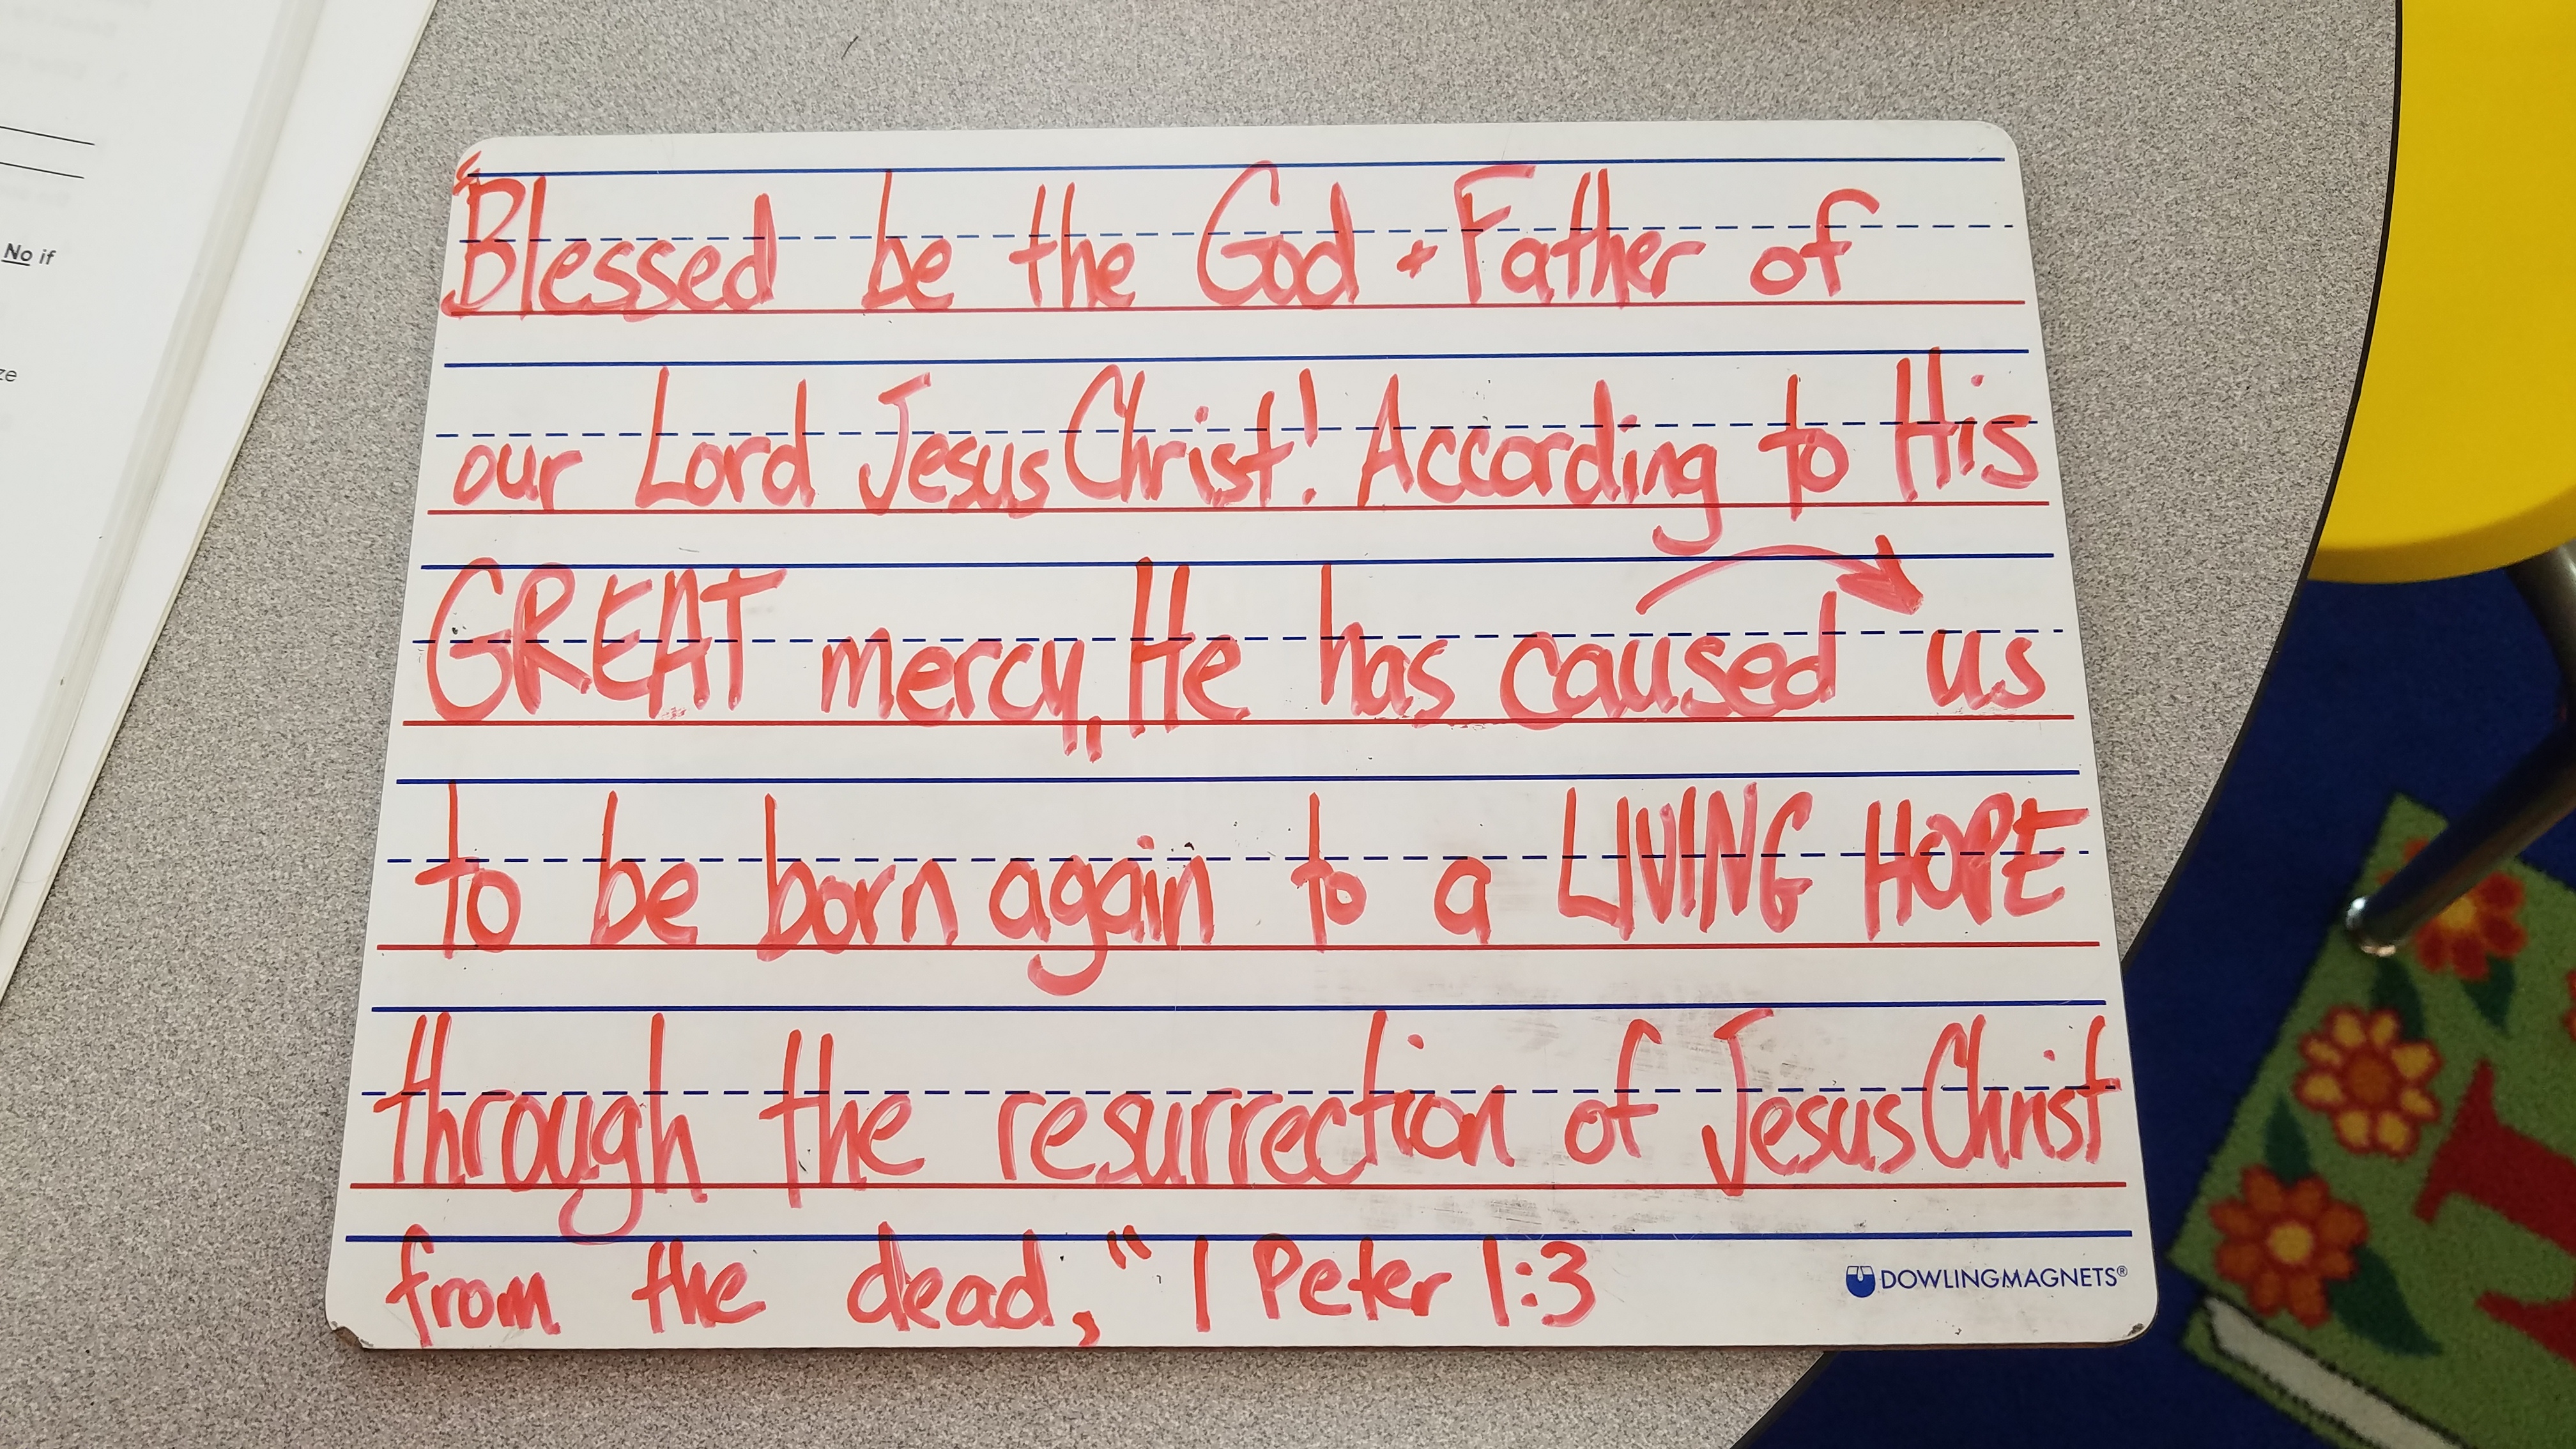 No if
ze
"Blessed be the God + Father of
our Lord Jesus Christ! According to His
GREAT mercy, He has caused us
to be born again to a LIVING HOPE
through the resurrection of Jesus Christ
from the dead," 1 Peter 1:3
DOWLINGMAGNETS®